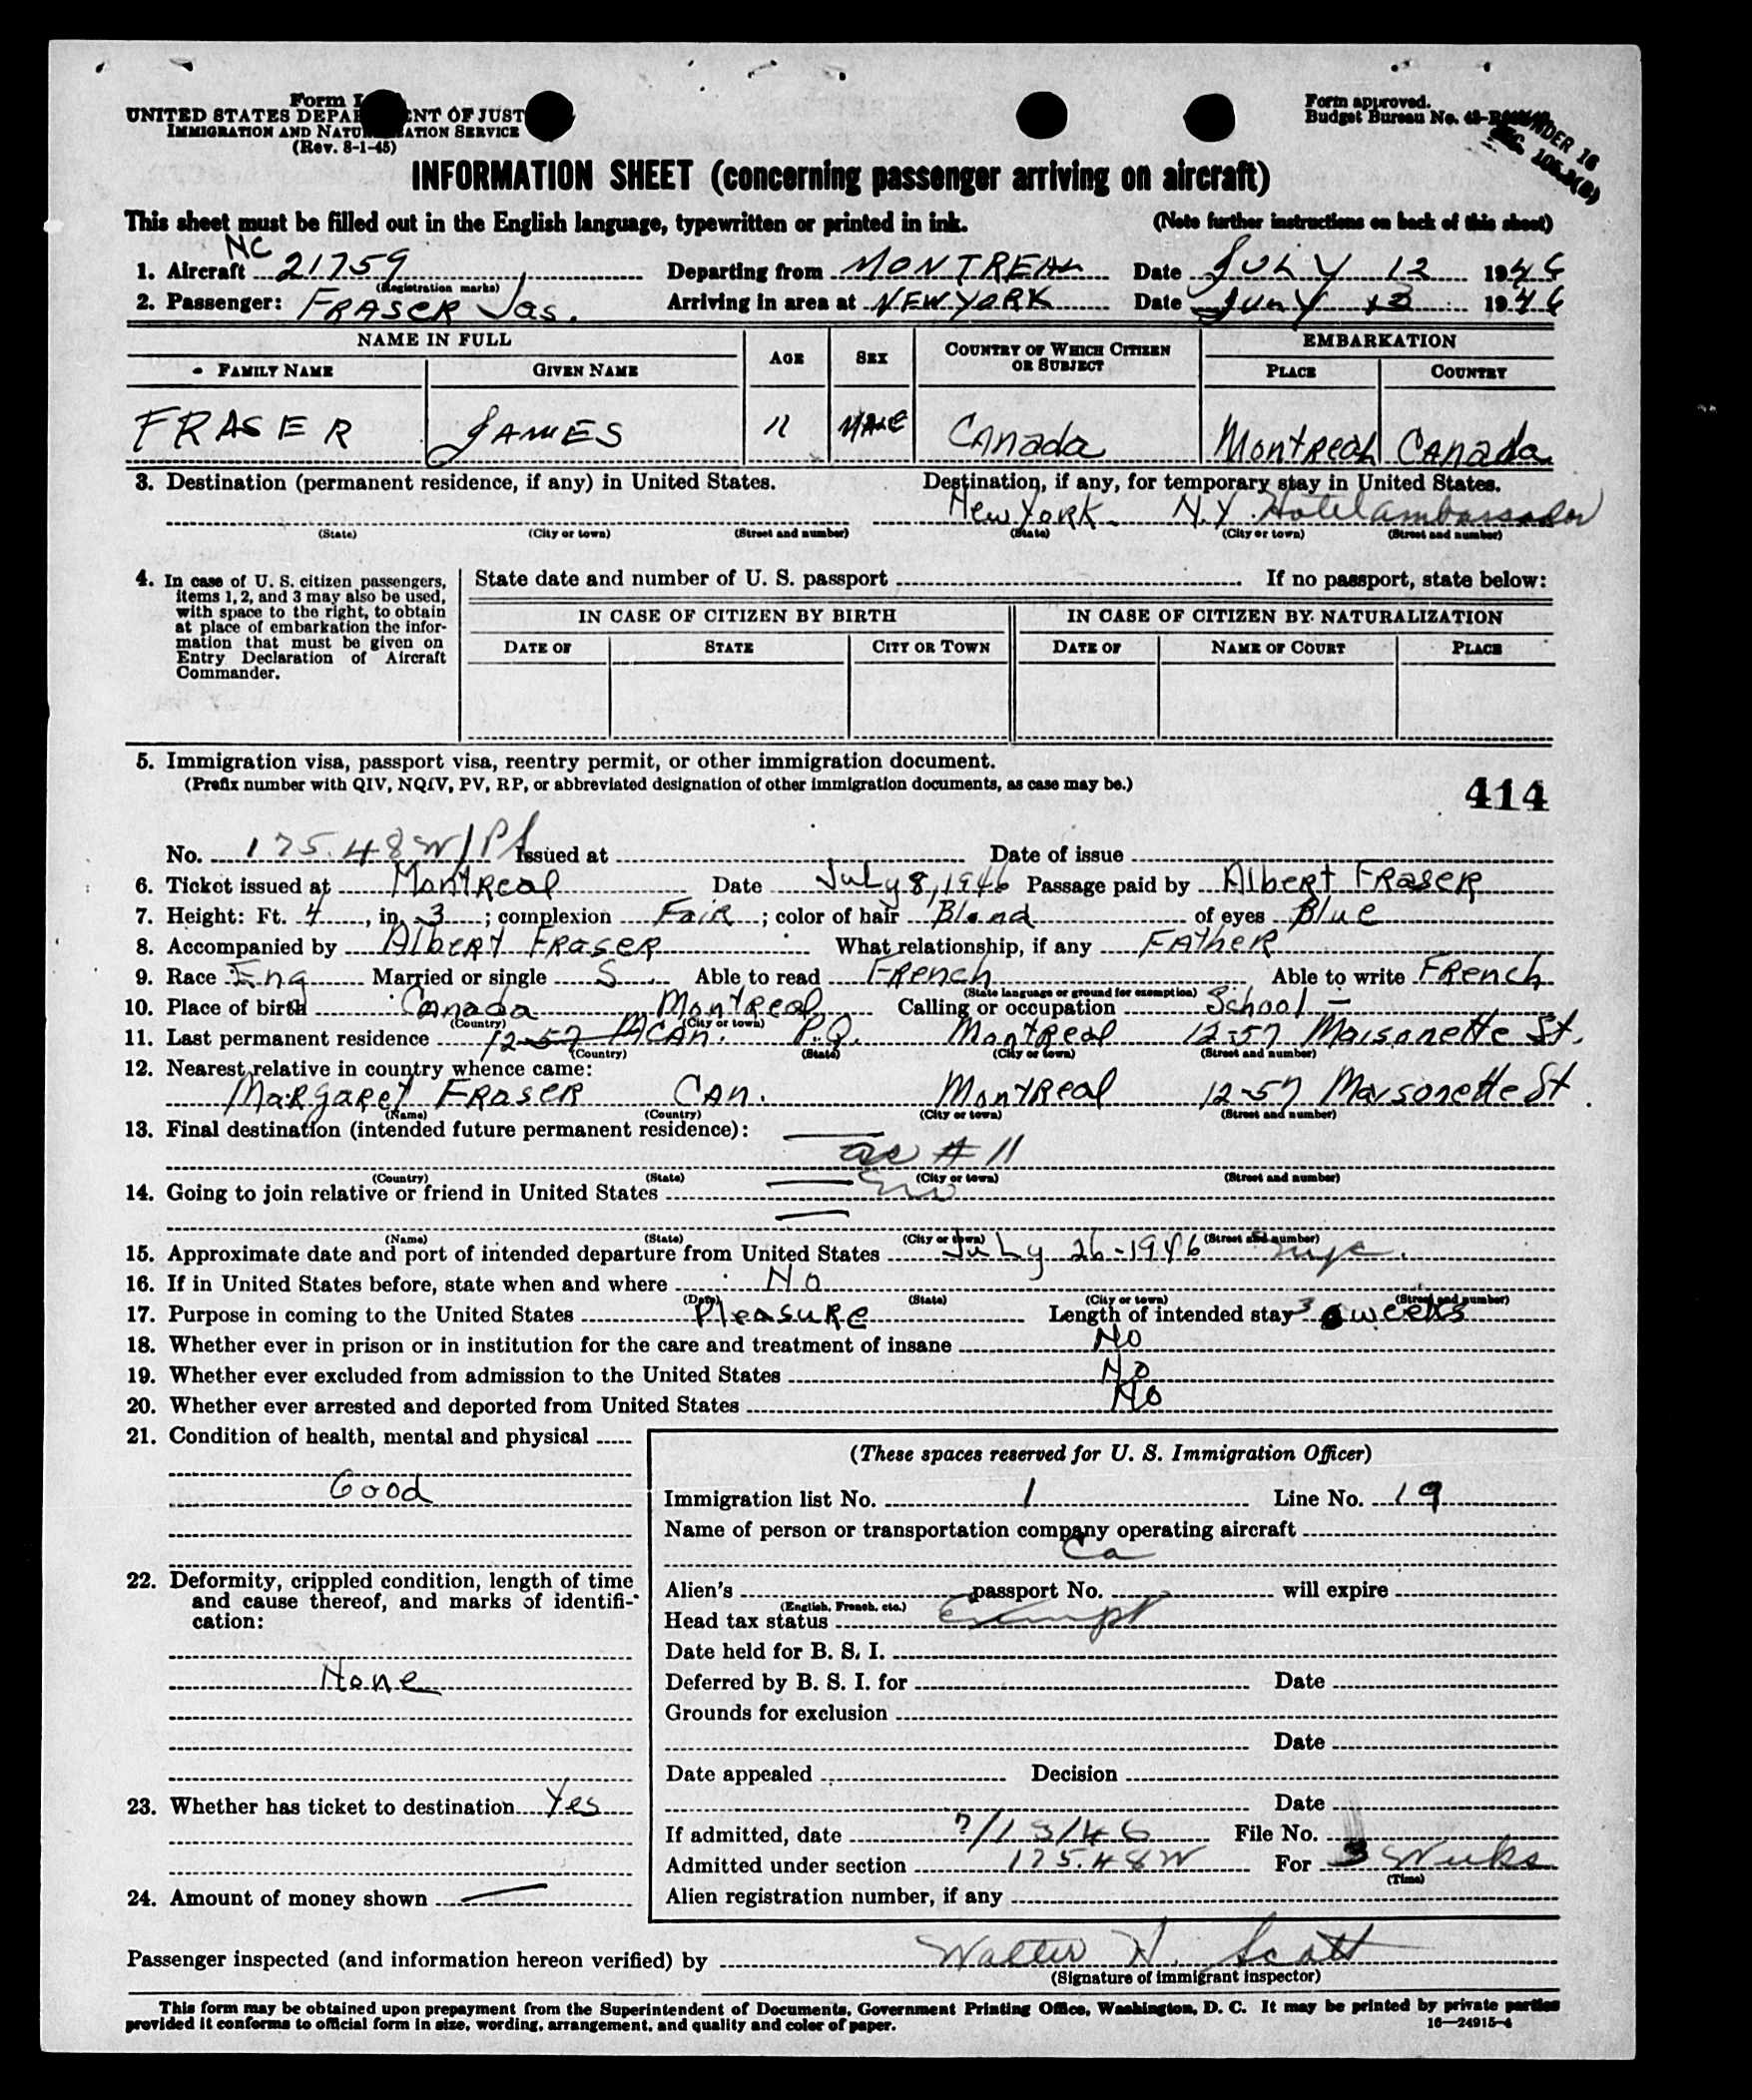 Form I
UNITED STATES DEPA ENT OF JUST
IMMIGRATION AND NATU ATION SERVICE
(Rev. 8-1-45)
Form approved.
Budget Bureau No. 43-
UNDER 16
SEC. 105.3(B)
INFORMATION SHEET (concerning passenger arriving on aircraft)
This sheet must be filled out in the English language, typewritten or printed in ink. (Note further instructions on back of this sheet)
NC
1. Aircraft 21759 Departing from MONTREAL Date JULY 12 1946
(Registration marks)
2. Passenger: FRASER Jas. Arriving in area at NEW YORK Date JULY 1946
NAME IN FULL AGE SEX COUNTRY OF WHICH CITIZEN OR SUBJECT EMBARKATION
FAMILY NAME GIVEN NAME PLACE COUNTRY
FRASER JAMES 11 MALE CANADA Montreal Canada
3. Destination (permanent residence, if any) in United States. Destination, if any, for temporary stay in United States.
New York N.Y. Hotel Ambassador
(State) (City or town) (Street and number) (State) (City or town) (Street and number)
4. In case of U. S. citizen passengers, items 1, 2, and 3 may also be used, with space to the right, to obtain at place of embarkation the information that must be given on Entry Declaration of Aircraft Commander.
State date and number of U. S. passport If no passport, state below:
IN CASE OF CITIZEN BY BIRTH IN CASE OF CITIZEN BY NATURALIZATION
DATE OF STATE CITY OR TOWN DATE OF NAME OF COURT PLACE
5. Immigration visa, passport visa, reentry permit, or other immigration document.
(Prefix number with QIV, NQIV, PV, RP, or abbreviated designation of other immigration documents, as case may be.)
414
No. 175.48W/ Issued at Date of issue
6. Ticket issued at Montreal Date July 8, 1946 Passage paid by Albert Fraser
7. Height: Ft. 4, in. 3; complexion Fair; color of hair Blond of eyes Blue
8. Accompanied by Albert Fraser What relationship, if any Father
9. Race Eng Married or single S Able to read French Able to write French
(State language or ground for exemption)
10. Place of birth Canada Montreal Calling or occupation School
(Country) (City or town)
11. Last permanent residence 12-57 M CAN. P.Q. Montreal 12-57 Maisonette St.
(Country) (State) (City or town) (Street and number)
12. Nearest relative in country whence came:
Margaret Fraser CAN. Montreal 12-57 Maisonette St.
(Name) (Country) (City or town) (Street and number)
13. Final destination (intended future permanent residence):
as # 11
(Country) (State) (City or town) (Street and number)
14. Going to join relative or friend in United States no
(Name) (State) (City or town) (Street and number)
15. Approximate date and port of intended departure from United States July 26-1946 nyc.
16. If in United States before, state when and where No
(Date) (State) (City or town) (Street and number)
17. Purpose in coming to the United States Pleasure Length of intended stay 3 weeks
18. Whether ever in prison or in institution for the care and treatment of insane No
19. Whether ever excluded from admission to the United States No
20. Whether ever arrested and deported from United States No
21. Condition of health, mental and physical
Good
22. Deformity, crippled condition, length of time and cause thereof, and marks of identification:
None
23. Whether has ticket to destination Yes
24. Amount of money shown
(These spaces reserved for U. S. Immigration Officer)
Immigration list No. 1 Line No. 19
Name of person or transportation company operating aircraft
Ca
Alien's passport No. will expire
(English, French, etc.)
Head tax status Exempt
Date held for B. S. I.
Deferred by B. S. I. for Date
Grounds for exclusion
Date
Date appealed Decision
Date
If admitted, date 7/13/46 File No.
Admitted under section 175.48W For 3 Weeks
(Time)
Alien registration number, if any
Passenger inspected (and information hereon verified) by Walter H. Scott
(Signature of immigrant inspector)
This form may be obtained upon prepayment from the Superintendent of Documents, Government Printing Office, Washington, D. C. It may be printed by private parties
provided it conforms to official form in size, wording, arrangement, and quality and color of paper. 16—24915-4